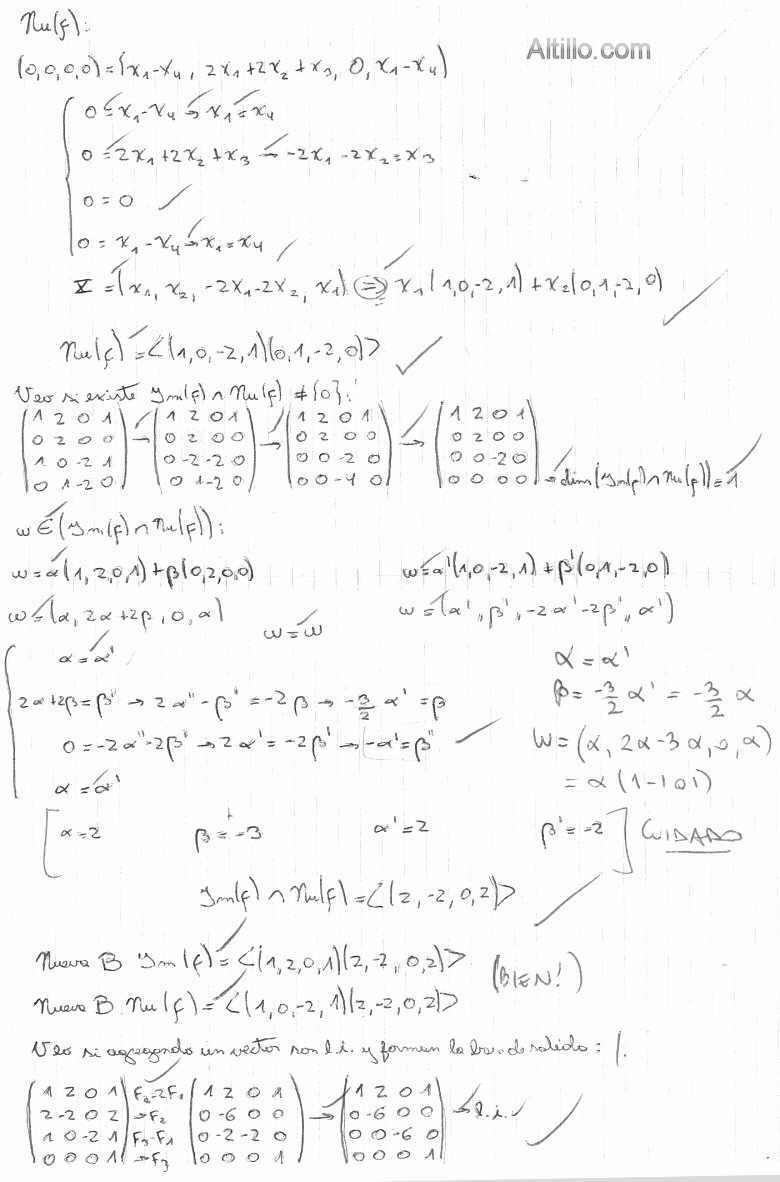 Nu(f):
Altillo.com
(0,0,0,0) = (x₁-x₄, 2x₁+2x₂+x₃, 0, x₁-x₄)
0 = x₁-x₄ → x₁ = x₄
0 = 2x₁+2x₂+x₃ → -2x₁-2x₂ = x₃
0 = 0
0 = x₁-x₄ → x₁ = x₄
X = (x₁, x₂, -2x₁-2x₂, x₁) => x₁(1,0,-2,1) + x₂(0,1,-2,0)
Nu(f) = <(1,0,-2,1)(0,1,-2,0)>
Veo si existe Im(f) ∩ Nu(f) ≠ {0}:
1 2 0 1 → 1 2 0 1 → 1 2 0 1 → 1 2 0 1
0 2 0 0 0 2 0 0 0 2 0 0 0 2 0 0
1 0 -2 1 0 -2 -2 0 0 0 -2 0 0 0 -2 0
0 1 -2 0 0 1 -2 0 0 0 -4 0 0 0 0 0 → dim(Im(f) ∩ Nu(f)) = 1
w ∈ (Im(f) ∩ Nu(f)):
w = α(1,2,0,1) + β(0,2,0,0) w = α'(1,0,-2,1) + β'(0,1,-2,0)
w = (α, 2α+2β, 0, α) w = w w = (α', β', -2α'-2β', α')
α = α' α = α'
2α+2β = β' → 2α'-β' = -2β → -3/2 α' = β β = -3/2 α' = -3/2 α
0 = -2α'-2β' → 2α' = -2β' → -α' = β' W = (α, 2α-3α, 0, α)
α = α' = α (1 -1 0 1)
[α = 2 β = -3 α' = 2 β' = -2] CUIDADO
Im(f) ∩ Nu(f) = <(2,-2,0,2)>
Nueva B Im(f) = <(1,2,0,1)(2,-2,0,2)> (BIEN!)
Nueva B Nu(f) = <(1,0,-2,1)(2,-2,0,2)>
Veo si agregando un vector son l.i. y forman la base de salida:
1 2 0 1 F₂-2F₁ 1 2 0 1 → 1 2 0 1 → l.i.
2 -2 0 2 →F₂ 0 -6 0 0 0 -6 0 0
1 0 -2 1 F₃-F₁ 0 -2 -2 0 0 0 -6 0
0 0 0 1 →F₃ 0 0 0 1 0 0 0 1